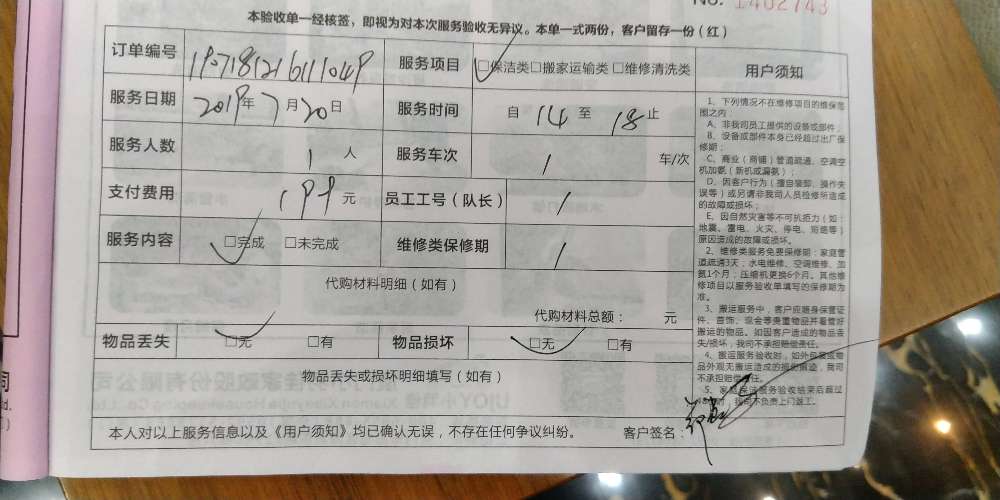 No. 1402743
本验收单一经核签，即视为对本次服务验收无异议。本单一式两份，客户留存一份（红）
订单编号 1907181216111049 服务项目 ☑保洁类 □搬家运输类 □维修清洗类 用户须知
服务日期 2019年7月20日 服务时间 自 14 至 18 止
服务人数 1 人 服务车次 / 车/次
支付费用 199 元 员工工号（队长） /
服务内容 ☑完成 □未完成 维修类保修期 /
代购材料明细（如有）
代购材料总额： 元
物品丢失 ☑无 □有 物品损坏 ☑无 □有
物品丢失或损坏明细填写（如有）
本人对以上服务信息以及《用户须知》均已确认无误，不存在任何争议纠纷。 客户签名：
1、下列情况不在维修项目的维保范
围之内
A、非我司员工提供的设备或部件；
B、设备或部件本身已经超过出厂保
修期；
C、商业（商铺）管道疏通、空调空
机加氨（新机或漏氨）；
D、因客户行为（擅自装卸、操作失
误等）或另请非我司人员检修所造成
的故障或损坏；
E、因自然灾害等不可抗拒力（如：
地震、雷电、火灾、停电、短路等）
原因造成的故障或损坏。
2、维修类服务免费保修期：家庭管
道疏通3天；水电维修、空调维修、加
氨1个月；压缩机更换6个月。其他维
修项目以服务验收单填写的保修期为
准。
3、搬运服务中，客户应随身保管证
件、首饰、现金等贵重物品并看管好
搬运的物品。如因客户造成的物品丢
失/损坏，我司不承担赔偿责任。
4、搬运服务验收时，如外包装或物
品外观无搬运造成的损坏痕迹，我司
不承担赔偿责任。
5、家庭保洁服务验收结束后超过
我司不负责上门返工。